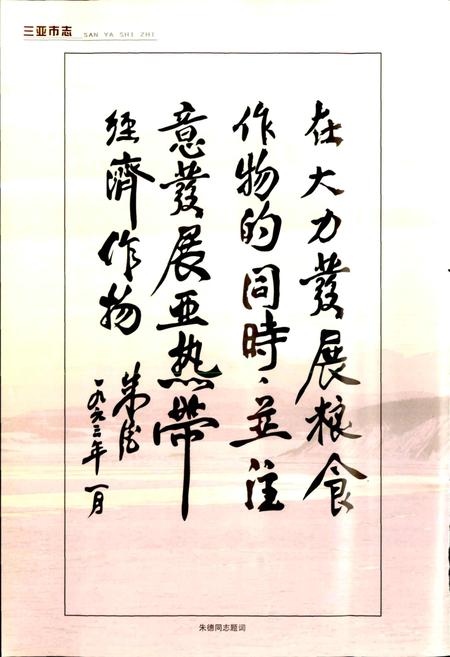 三亚市志 SAN YA SHI ZHI
在大力發展粮食
作物的同時,並注
意發展亚热带
經濟作物
朱德
一九六三年一月
朱德同志题词